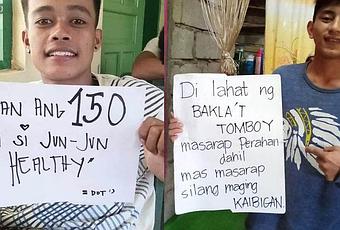 AN ANG 150
SI JUN-JUN
HEALTHY"
= DOT :)
Di lahat ng
BAKLA'T
TOMBOY
masarap Perahan
dahil
mas masarap
silang maging
KAIBIGAN.